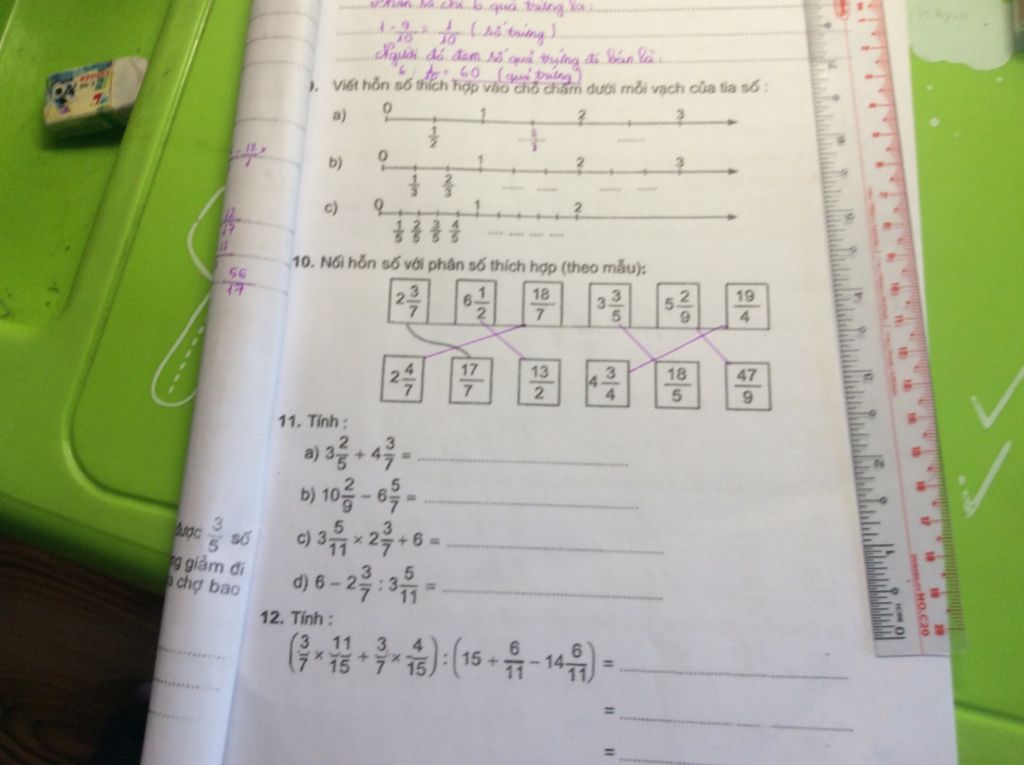 1 - 9/10 = 1/10 ( số trứng )
Người đó đem số quả trứng đi bán là :
6 : 1/10 = 60 (quả trứng)
9. Viết hỗn số thích hợp vào chỗ chấm dưới mỗi vạch của tia số :
a) 0 1 2 3
1/2 ........
b) 0 1 2 3
1/3 2/3 ...... ...... ...... ......
c) 0 1 2
1/5 2/5 3/5 4/5 .... .... .... ....
10. Nối hỗn số với phân số thích hợp (theo mẫu):
2 3/7 6 1/2 18/7 3 3/5 5 2/9 19/4
2 4/7 17/7 13/2 4 3/4 18/5 47/9
11. Tính :
a) 3 2/5 + 4 3/7 =
b) 10 2/9 - 6 5/7 =
c) 3 5/11 × 2 3/7 + 6 =
d) 6 - 2 3/7 : 3 5/11 =
12. Tính :
(3/7 × 11/15 + 3/7 × 4/15) : (15 + 6/11 - 14 6/11) =
=
=
56/17
được 3/5 số
giảm đi
chợ bao
NO.C20